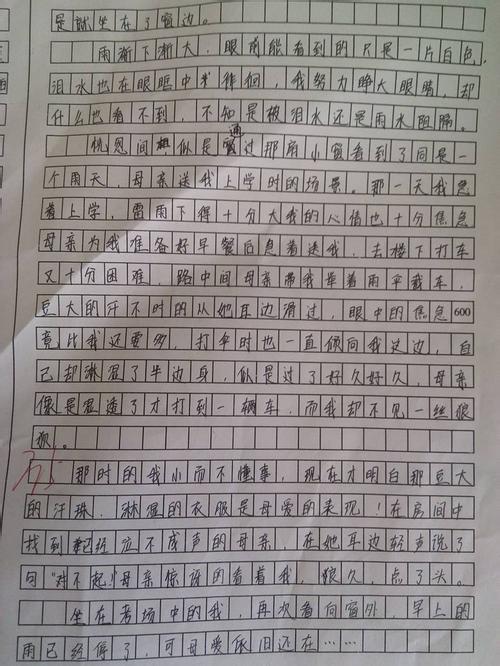 是就坐在了窗边。
雨渐下渐大，眼前能看到的只是一片白色，
泪水也在眼眶中徘徊，我努力睁大眼睛，却
什么也看不到，不知是被泪水还是雨水阻隔。
恍恩间似是通过那扇小窗看到了同是一
个雨天，母亲送我上学时的场景。那一天我急
着上学，雷雨下得十分大我的心情也十分焦急
母亲为我准备好早餐后急着送我，去楼下打车
又十分困难，路中间母亲带我举着雨伞截车，
豆大的汗不时的从她耳边滑过，眼中的焦急
600
竟比我还要多，打伞时也一直倾向我这边，自
己却淋湿了半边身，似是过了好久好久，母亲
像是湿透了才打到一辆车，而我却不见一丝狼
狈。
那时的我小而不懂事，现在才明白那豆大
的汗珠，淋湿的衣服是母爱的表现！在房间中
找到已经泣不成声的母亲，在她耳边轻声说了
句“对不起”！母亲惊讶的看着我，良久，点了头。
坐在考场中的我，再次看向窗外，早上的
雨已经停了，可母爱依旧还在……